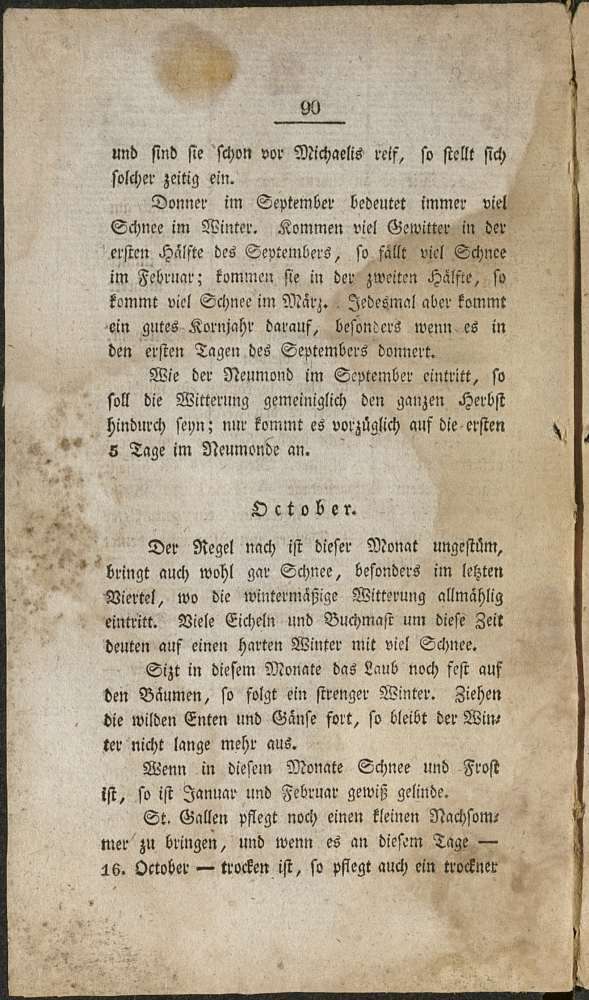 90
und sind sie schon vor Michaelis reif, so stellt sich
solcher zeitig ein.
Donner im September bedeutet immer viel
Schnee im Winter. Kommen viel Gewitter in der
ersten Hälfte des Septembers, so fällt viel Schnee
im Februar; kommen sie in der zweiten Hälfte, so
kommt viel Schnee im März. Jedesmal aber kommt
ein gutes Kornjahr darauf, besonders wenn es in
den ersten Tagen des Septembers donnert.
Wie der Neumond im September eintritt, so
soll die Witterung gemeiniglich den ganzen Herbst
hindurch seyn; nur kommt es vorzüglich auf die ersten
5 Tage im Neumonde an.
October.
Der Regel nach ist dieser Monat ungestüm,
bringt auch wohl gar Schnee, besonders im letzten
Viertel, wo die wintermäßige Witterung allmählig
eintritt. Viele Eicheln und Buchmast um diese Zeit
deuten auf einen harten Winter mit viel Schnee.
Sizt in diesem Monate das Laub noch fest auf
den Bäumen, so folgt ein strenger Winter. Ziehen
die wilden Enten und Gänse fort, so bleibt der Win-
ter nicht lange mehr aus.
Wenn in diesem Monate Schnee und Frost
ist, so ist Januar und Februar gewiß gelinde.
St. Gallen pflegt noch einen kleinen Nachsom-
mer zu bringen, und wenn es an diesem Tage —
16. October — trocken ist, so pflegt auch ein trockner